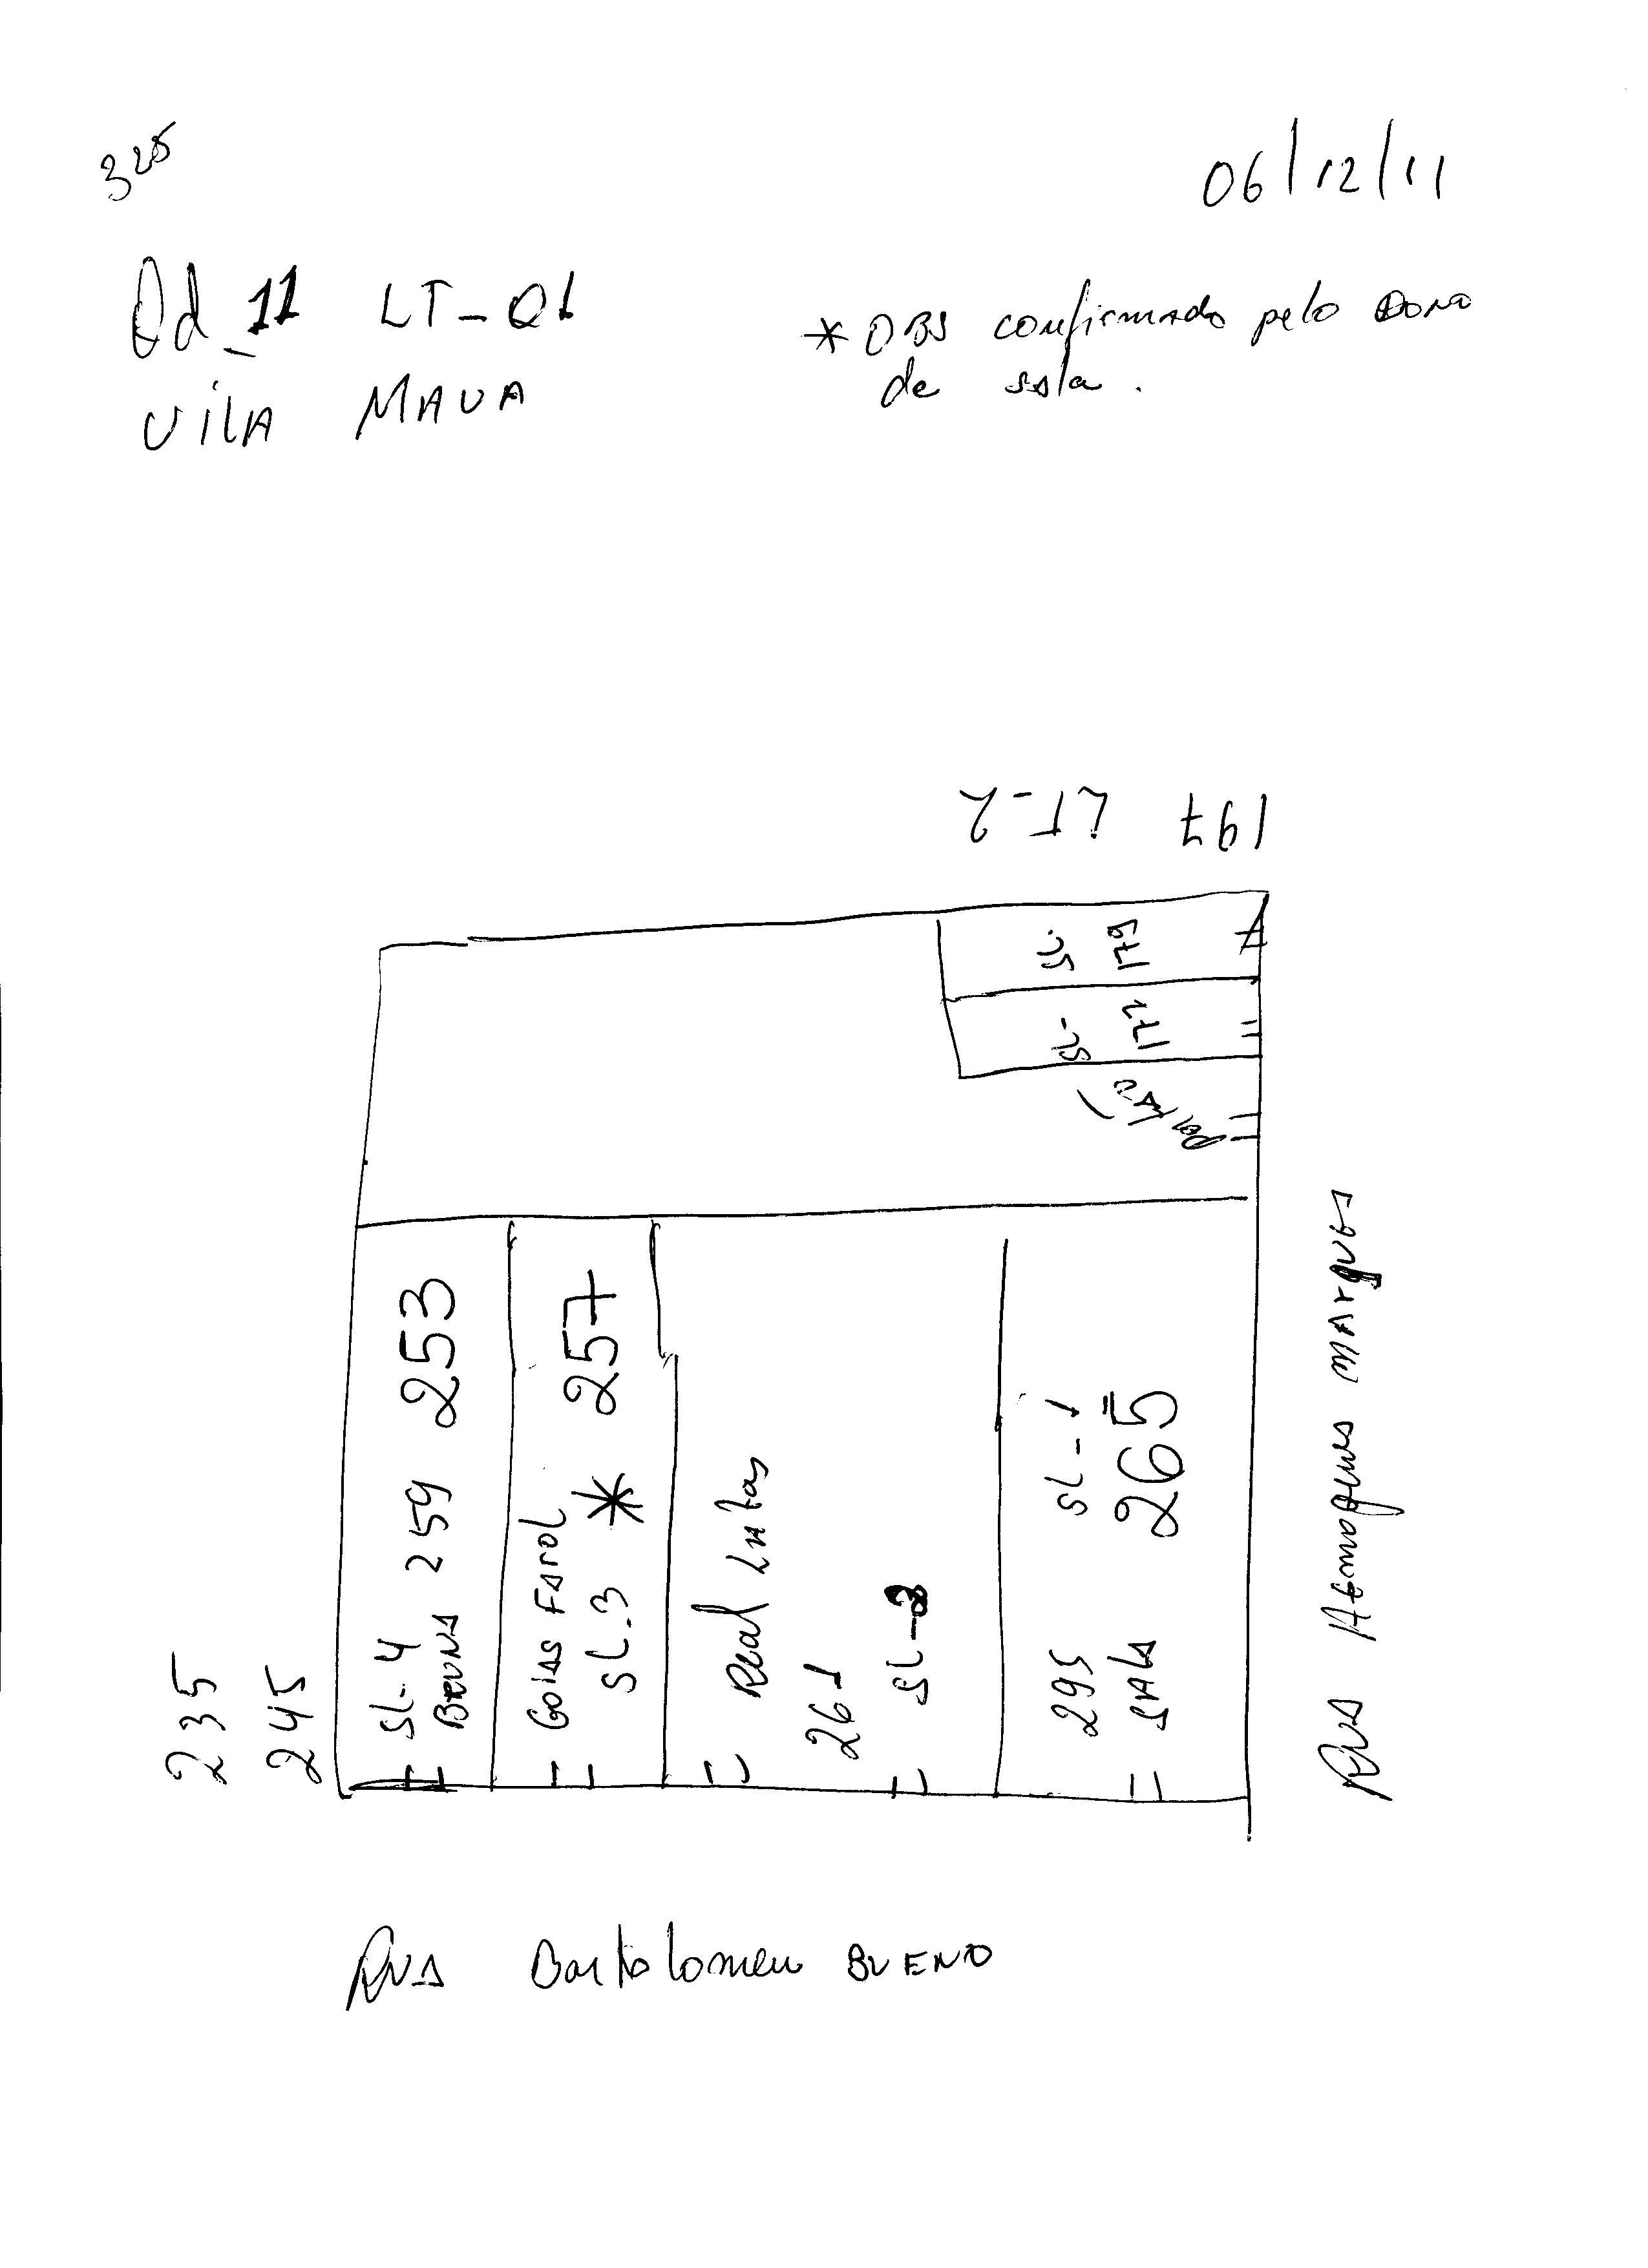 325
06/12/11
Qd_11 LT-01
VilA MAUA
* OBS confirmado pelo Dono
de sala.
197 LT-2
SL. 179
SL- 171
Portão
SL-4 253
BRUNA 259
GOIAS FAROL 257
SL-3 *
Real Lutas
261
SL-2
295 SL-1
SALA 265
235
245
RUA Bartolomeu BUENO
RUA MARQUES